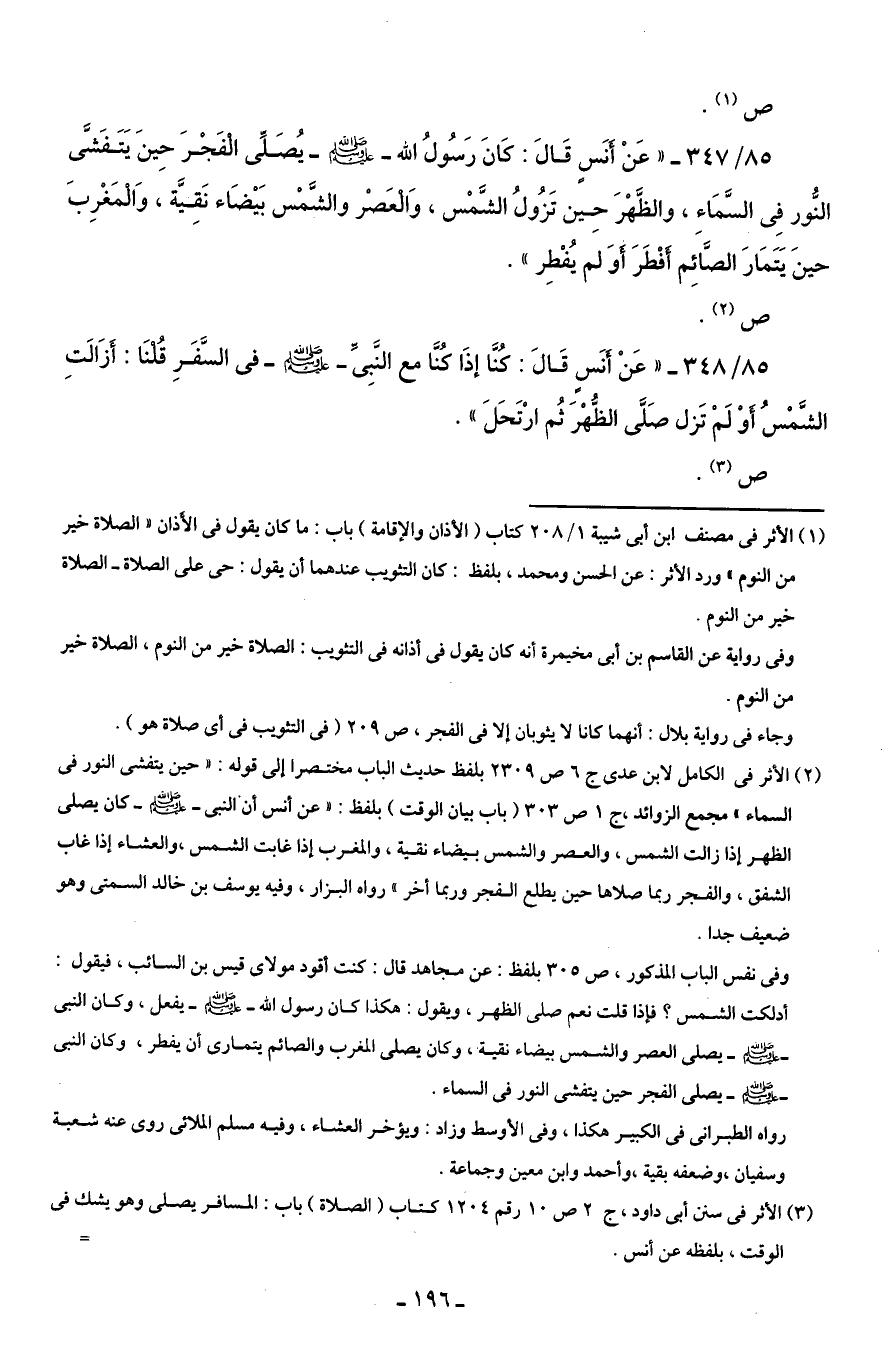 ص (١) .
٣٤٧/٨٥ ـ « عَنْ أَنَسٍ قَالَ : كَانَ رَسُولُ الله ـ ﷺ ـ يُصَلِّى الْفَجْرَ حِينَ يَتَفَشَّى
النُّور فِى السَّمَاءِ ، والظُّهْرَ حِين تَزُولُ الشَّمْس ، وَالْعَصْر والشَّمْس بَيْضَاء نَقِيَّة ، وَالْمَغْرِبَ
حينَ يَتَمَارَ الصَّائِم أَفْطَرَ أَوَ لم يُفْطِر » .
ص (٢) .
٣٤٨/٨٥ ـ « عَنْ أَنَسٍ قَالَ : كُنَّا إِذَا كُنَّا مع النَّبِىِّ ـ ﷺ ـ فى السَّفَرِ قُلْنَا : أَزَالَتِ
الشَّمْسُ أَوْ لَمْ تَزل صَلَّى الظُّهْرَ ثُم ارْتَحَلَ » .
ص (٣) .
(١) الأثر فى مصنف ابن أبى شيبة ٢٠٨/١ كتاب ( الأذان والإقامة ) باب : ما كان يقول فى الأذان « الصلاة خير
من النوم » ورد الأثر : عن الحسن ومحمد ، بلفظ : كان التثويب عندهما أن يقول : حى على الصلاة ـ الصلاة
خير من النوم .
وفى رواية عن القاسم بن أبى مخيمرة أنه كان يقول فى أذانه فى التثويب : الصلاة خير من النوم ، الصلاة خير
من النوم .
وجاء فى رواية بلال : أنهما كانا لا يثوبان إلا فى الفجر ، ص ٢٠٩ ( فى التثويب فى أى صلاة هو ) .
(٢) الأثر فى الكامل لابن عدى ج ٦ ص ٢٣٠٩ بلفظ حديث الباب مختصرا إلى قوله : « حين يتفشى النور فى
السماء » مجمع الزوائد ،ج ١ ص ٣٠٣ ( باب بيان الوقت ) بلفظ : « عن أنس أن النبى ـ ﷺ ـ كان يصلى
الظهر إذا زالت الشمس ، والعصر والشمس بيضاء نقية ، والمغرب إذا غابت الشمس ،والعشاء إذا غاب
الشفق ، والفجر ربما صلاها حين يطلع الفجر وربما أخر » رواه البزار ، وفيه يوسف بن خالد السمتى وهو
ضعيف جدا .
وفى نفس الباب المذكور ، ص ٣٠٥ بلفظ : عن مجاهد قال : كنت أقود مولاى قيس بن السائب ، فيقول :
أدلكت الشمس ؟ فإذا قلت نعم صلى الظهر ، ويقول : هكذا كان رسول الله ـ ﷺ ـ يفعل ، وكان النبى
ـ ﷺ ـ يصلى العصر والشمس بيضاء نقية ، وكان يصلى المغرب والصائم يتمارى أن يفطر ، وكان النبى
ـ ﷺ ـ يصلى الفجر حين يتفشى النور فى السماء .
رواه الطبرانى فى الكبير هكذا ، وفى الأوسط وزاد : ويؤخر العشاء ، وفيه مسلم الملائى روى عنه شعبة
وسفيان ،وضعفه بقية ،وأحمد وابن معين وجماعة .
(٣) الأثر فى سنن أبى داود ،ج ٢ ص ١٠ رقم ١٢٠٤ كتاب ( الصلاة ) باب : المسافر يصلى وهو يشك فى
الوقت ، بلفظه عن أنس .
=
ـ ١٩٦ ـ